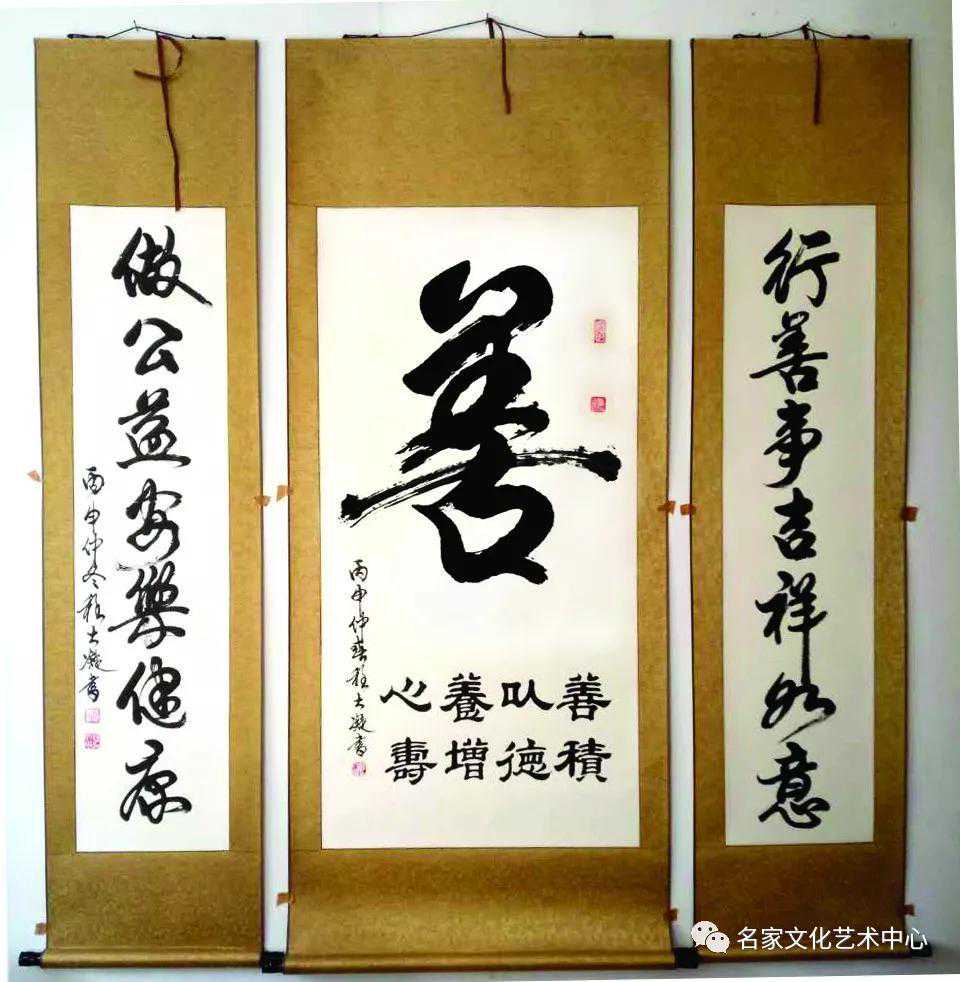 行善事吉祥如意
善
善以養心
積德增壽
丙申仲 大凝書
做公益安樂健康
丙申仲冬 大凝書
名家文化艺术中心